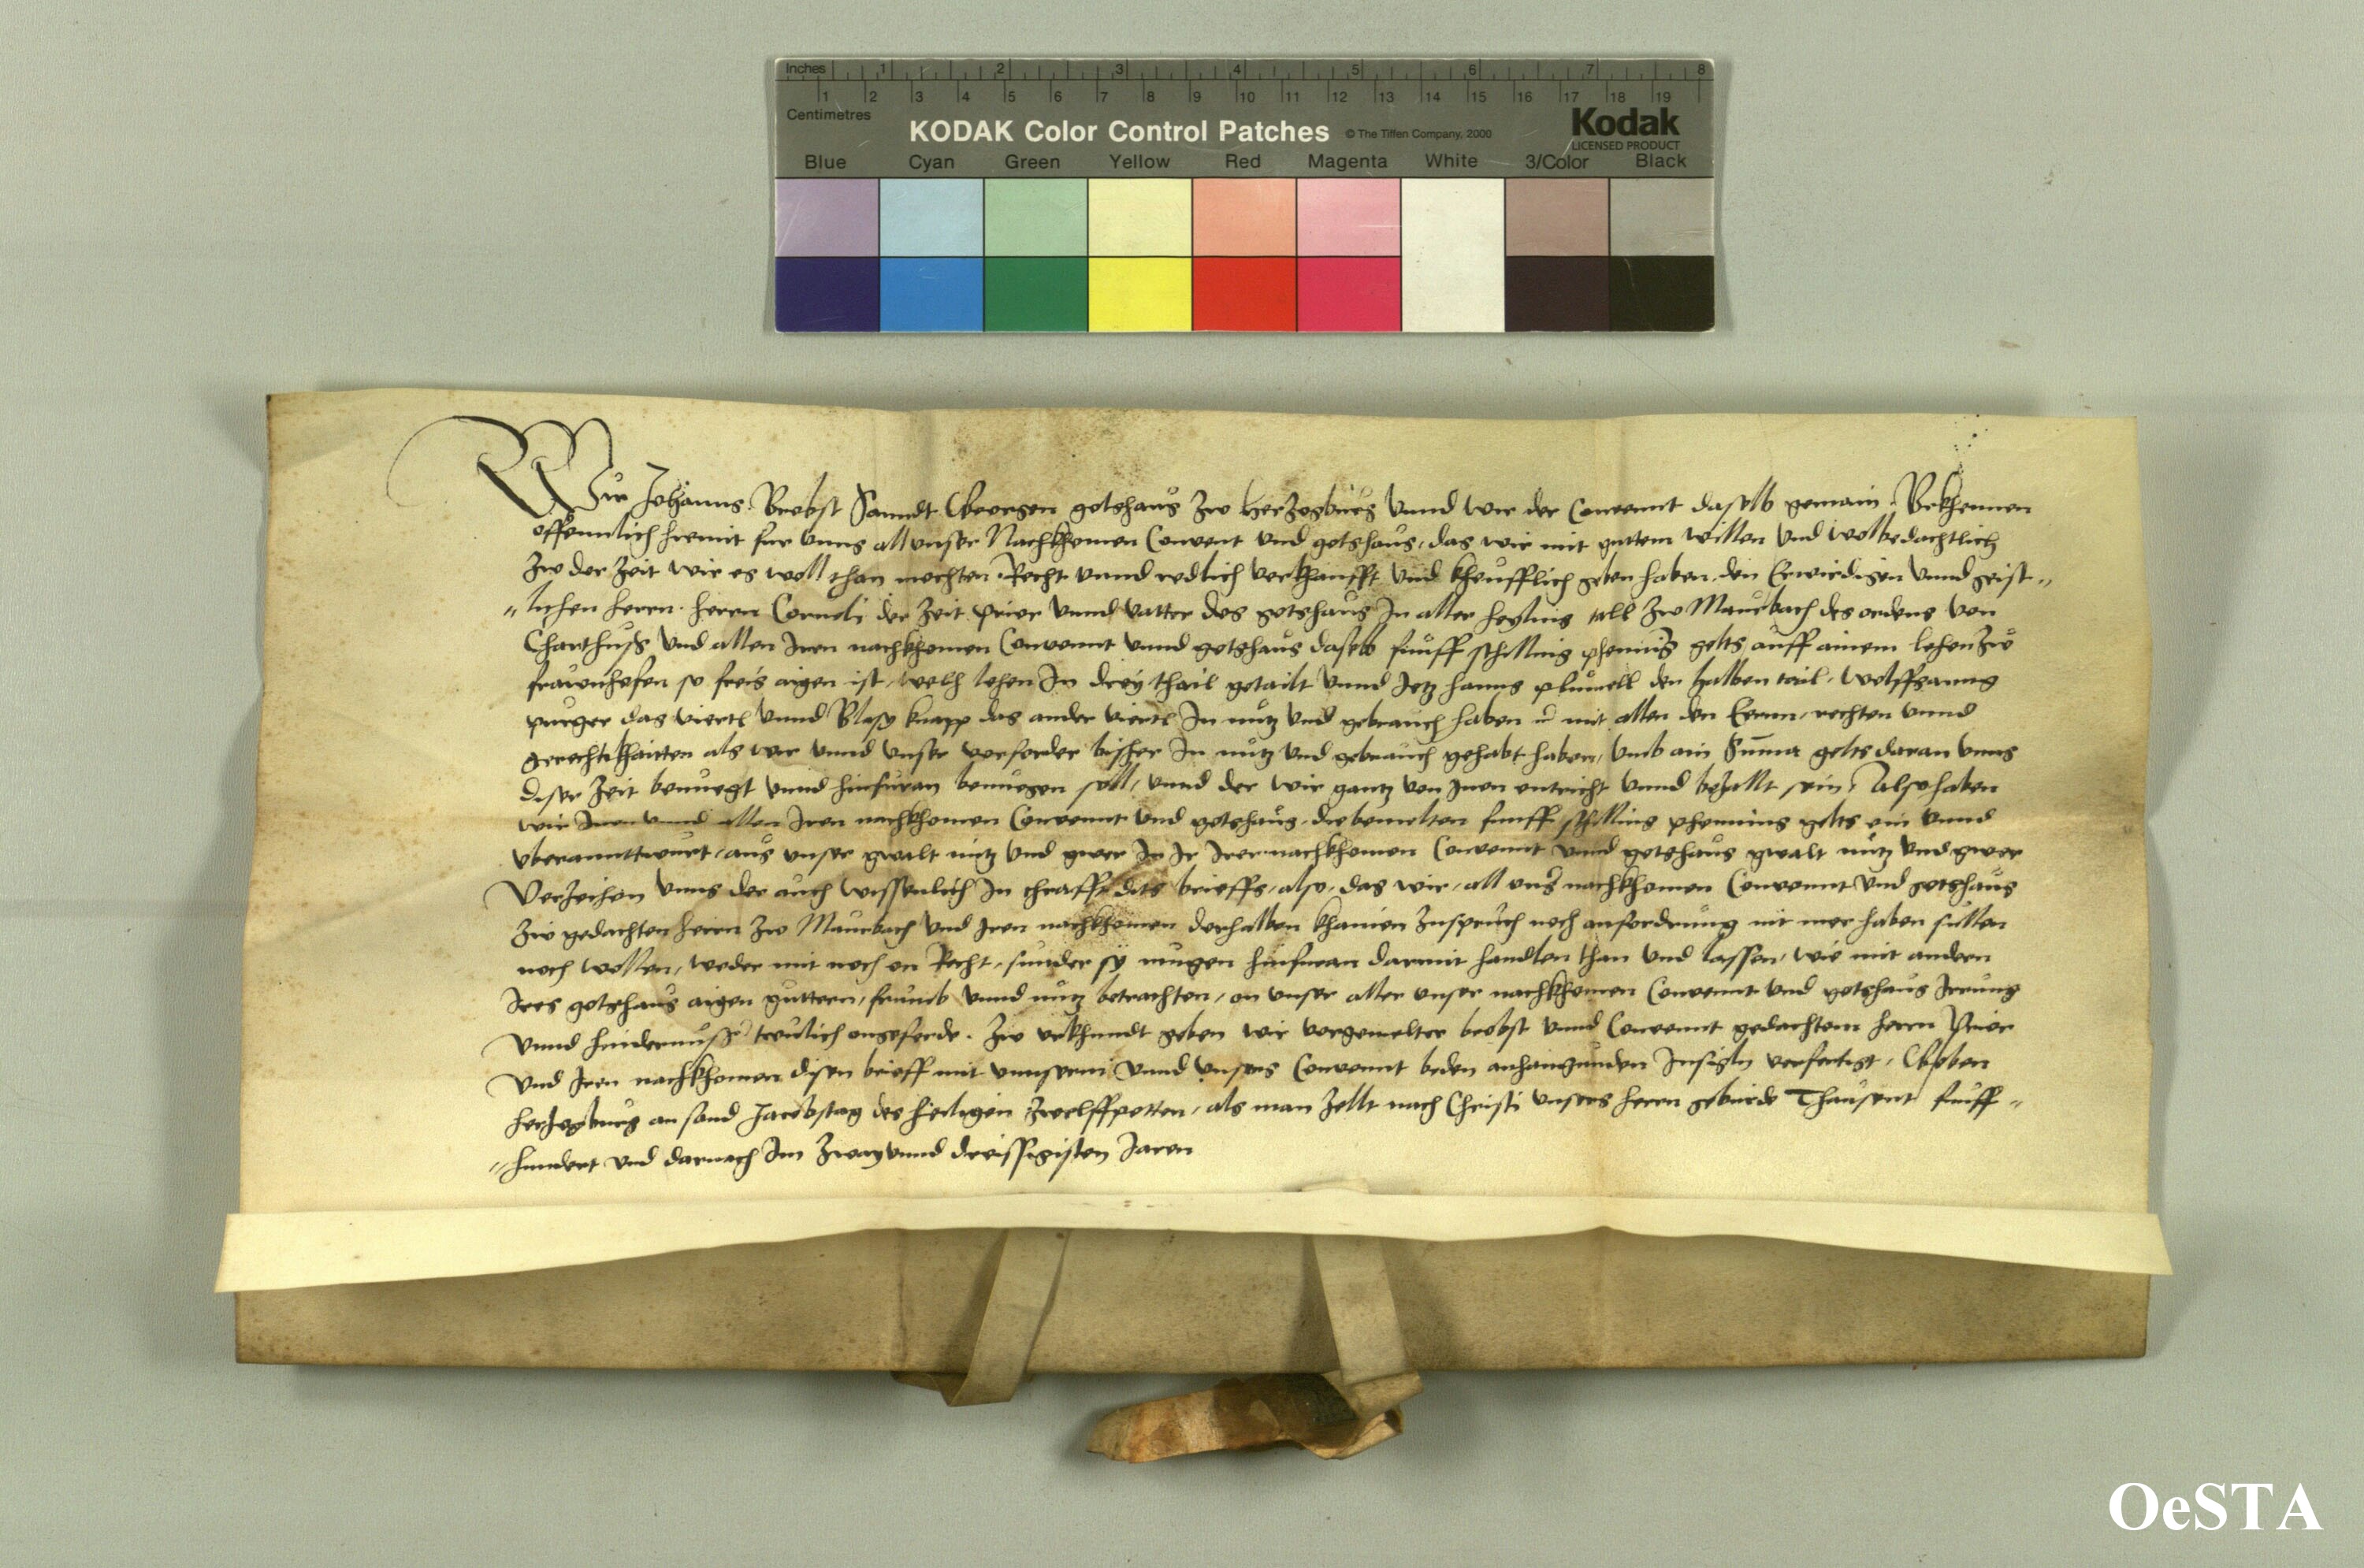 Inches 1 2 3 4 5 6 7 8
1 2 3 4 5 6 7 8 9 10 11 12 13 14 15 16 17 18 19
Centimetres
KODAK Color Control Patches © The Tiffen Company, 2000 Kodak
LICENSED PRODUCT
Blue Cyan Green Yellow Red Magenta White 3/Color Black
Wir Johanns Brobst Sanndt Georgen gotshaus zw Herzogburg vnnd wir der Convennt daselb gemain. Bekhennen
offennlich hiemit fur vnns all vnser Nachkhomen Convent vnd gotshaus, das wir mit guttem willen vnd wolbedachtlich
zw der Zeit wir es woll than mochten Recht vnnd redlich verkhaufft vnd kheufflich geben haben den Erwirdigen vnnd geist„
„lichen herrn. herrn Corneli der Zeit prior vnnd vatter des gotshaus In aller heyling tall zw Maurbach des ordens von
Charthuss vnd allen Iren nachkhomen Convennt vnnd gotshaus daselb funff schilling phening gelts auff ainem lehen zw
frawnhofen so freis aigen ist, welh lehen In drey thail getailt vnnd Jetz hanns plumell den halben tail, Wolffganng
purger das viertl vnnd Blasy knapp das ander viertl In nutz vnd gebrauch haben mit allen den Eernn, rechten vnnd
gerechtikhaitten als wir vnnd vnser vorforder bisher In nutz vnd gebrauch gehabt haben, vmb ain Summa gelts daran vnns
diser Zeit benuegt vnnd hinfuran benuegen soll, vnnd der wir gantz von Inen entricht vnnd bezallt sein, Also haben
wir Inen vnnd allen Iren nachkhomen Convennt vnd gotshaus, die bemelten funff schilling phening gelts ein vnnd
vberanntwurt, aus vnser gwalt nutz vnd gwer In Ir Irer nachkhomen Convennt vnnd gotshaus gwalt nutz vnd gwer
Verzeihen vnns der auch wissenlich In chrafft dits brieffs, also, das wir, all vnser nachkhomen Convennt vnd gotshaus
zw gedachten herrn zw Maurbach vnd Iren nachkhomen derhalben khainen Zuspruch noch anfordrung nit mer haben sullen
noch wollen, weder mit noch on Recht, sunder sy mugen hinfuran darmit handlen than vnd lassen, wie mit andern
Ires gotshaus aigen guttern, frumb vnnd nutz betrachten, on vnser aller vnser nachkhomen Convennt vnd gotshaus Irrung
vnnd hindernuss treulich ongeferde. Zw vrkhundt geben wir vorgemelter brobst vnnd Convennt gedachtem herrn Prior
vnd Iren nachkhomen disen brieff mit vnnserm vnnd vnsers Convennt beden anhangunden Insigln verfertigt, Geben
herzogburg an sand Jacobstag des heiligen Zwelffpotten, als man zellt nach Christi vnsers herrn geburde Thausent funff„
„hundert vnd darnach Im zway vnnd dreissigisten Jaren
OeSTA